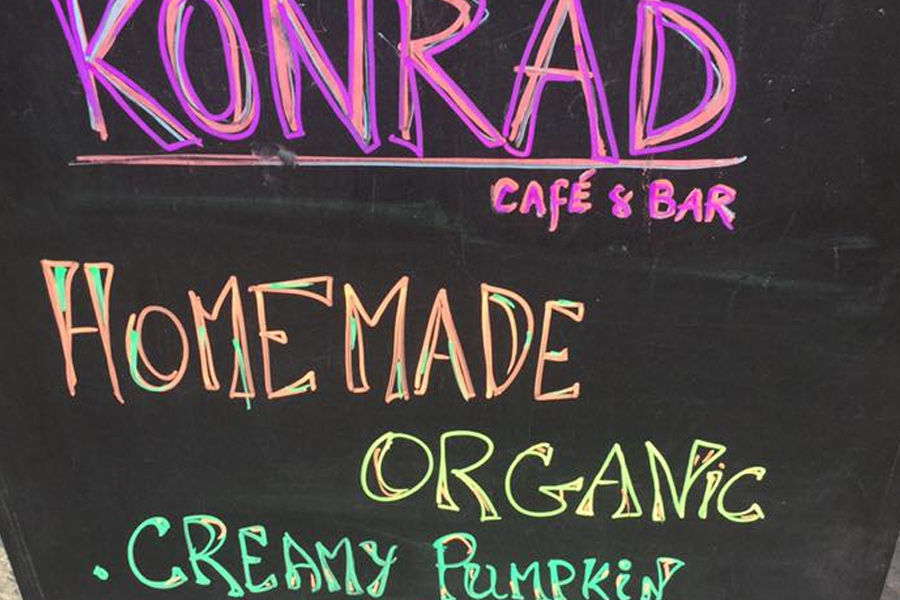 KONRAD
CAFÉ & BAR
HOMEMADE
ORGANiC
. CREAMY PUMPKiN